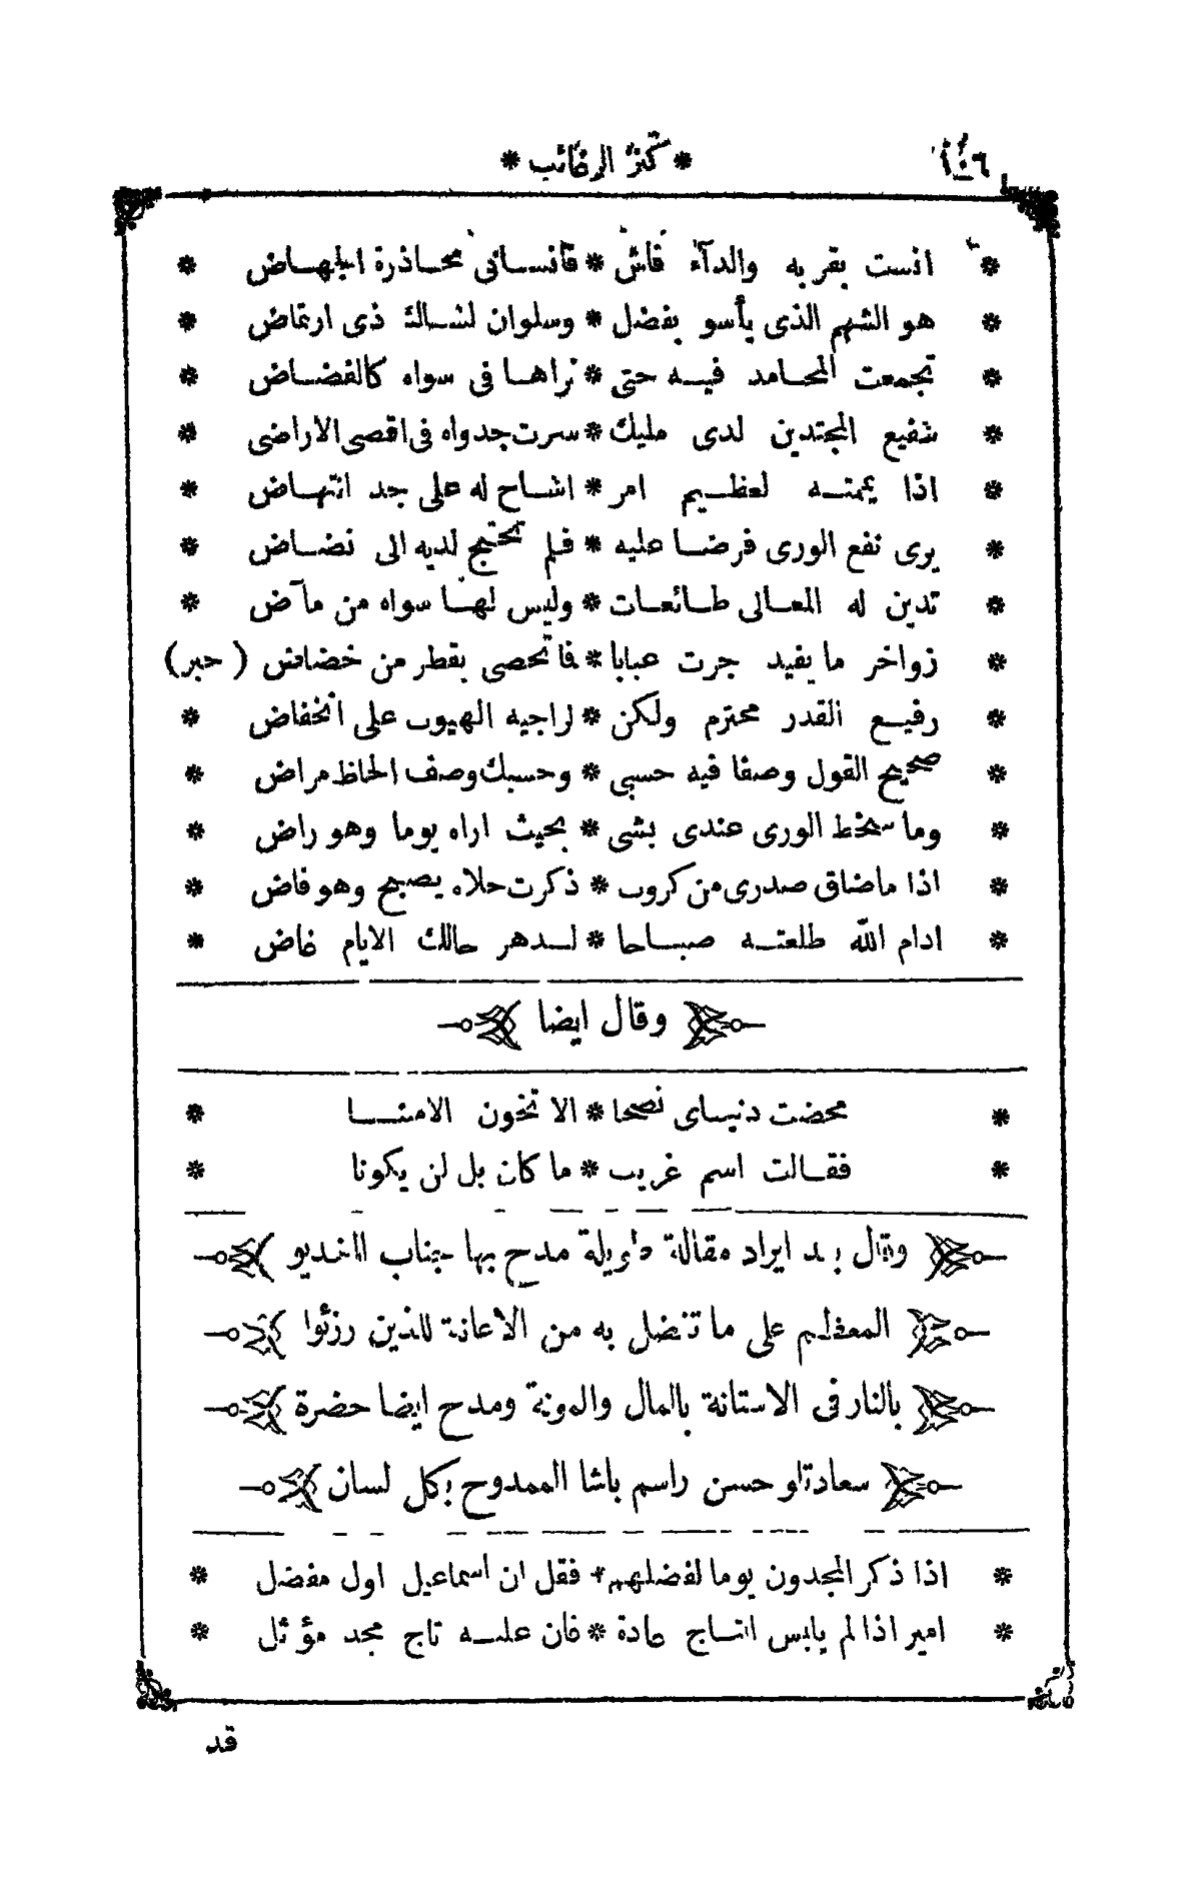 * كنز الرغائب *
* انست بقربه والدآء فاش * فأنسانى محاذرة الجهاض *
* هو الشهم الذى يأسو بفضل * وسلوان لشالك ذى ارتماض *
* تجمعت المحامد فيه حتى * نراها فى سواه كالفضاض *
* شفيع المجتدين لدى مليك * سرت جدواه فى اقصى الاراضى *
* اذا يممته لعظيم امر * اشاح له على جد انتهاض *
* يرى نفع الورى فرضا عليه * فلم تحتج لديه الى نضاض *
* تدين له المعالى طائعات * وليس لها سواه من مآض *
* زواخر ما يفيد جرت عبابا * فاتحصى بقطر من خضاض ( حبر )
* رفيع القدر محترم ولكن * لراجيه الهيوب على انخفاض *
* صحيح القول وصفا فيه حسبى * وحسبك وصف الحاظ مراض *
* وما سخط الورى عندى بشى * بحيث اراه يوما وهو راض *
* اذا ما ضاق صدرى من كروب * ذكرت حلاه يصبح وهو فاض *
* ادام الله طلعته صباحا * لدهر حالك الايام غاض
وقال ايضا
* محضت دنياى نصحا * الا تخون الامنا *
* فقالت اسم غريب * ما كان بل لن يكونا *
وقال بعد ايراد مقالة طويلة مدح بها جناب الخديو
المعظم على ما تفضل به من الاعانة للذين رزئوا
بالنار فى الاستانة بالمال والمونة ومدح ايضا حضرة
سعادتلو حسن راسم باشا الممدوح بكل لسان
* اذا ذكر المجدون يوما لفضلهم * فقل ان اسماعيل اول مفضل *
* امير اذا لم يلبس التاج عادة * فان عليه تاج مجد مؤثل *
قد